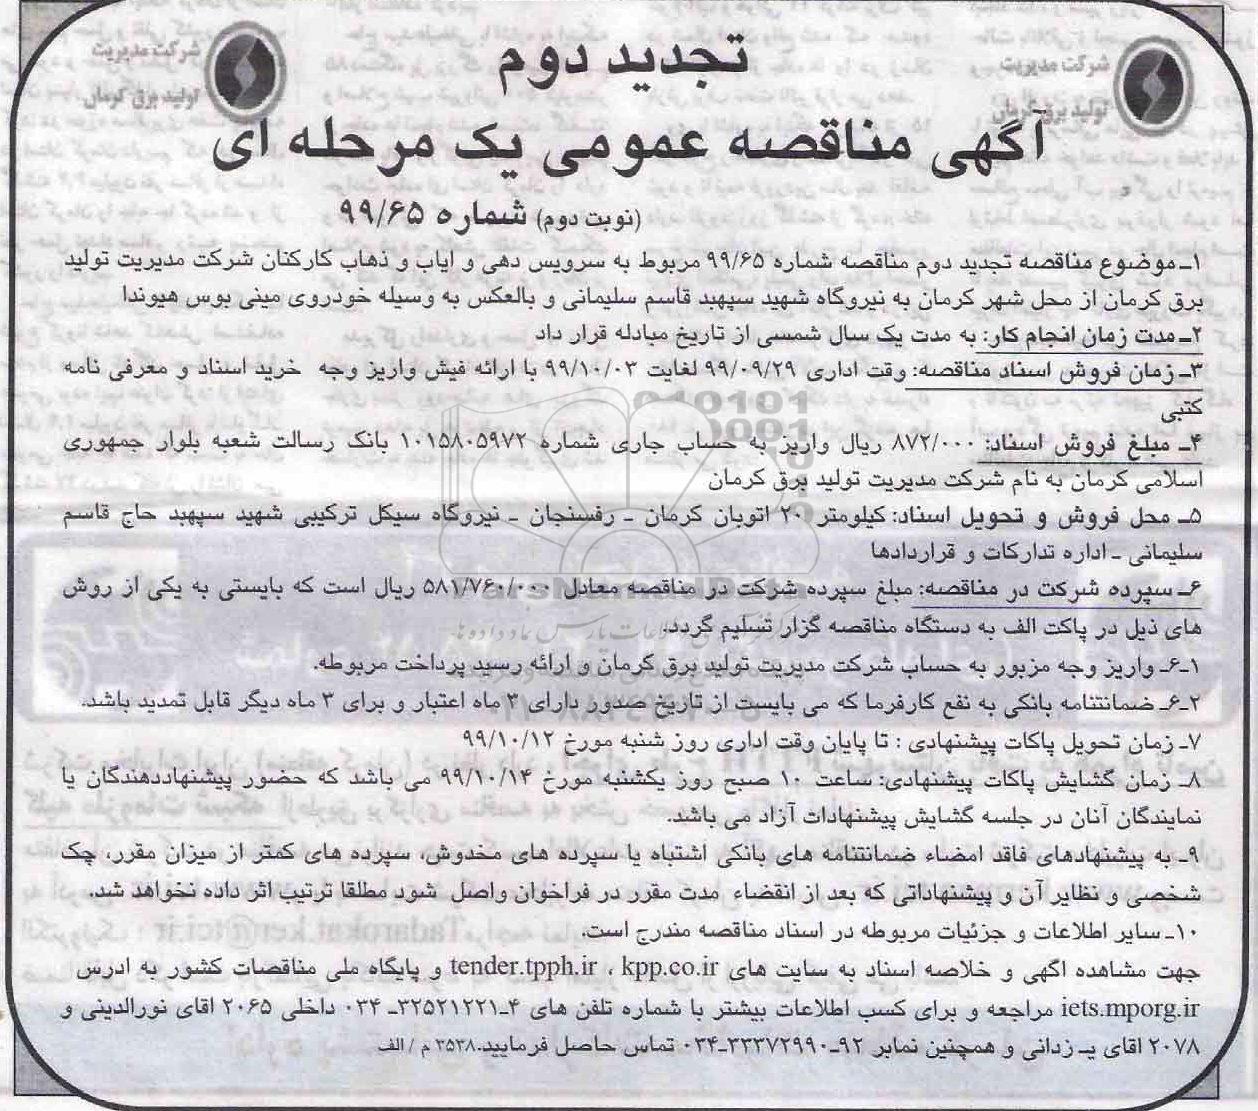 تجدید دوم
شرکت مدیریت
تولید برق کرمان
شرکت مدیریت
تولید برق کرمان
آگهی مناقصه عمومی یک مرحله ای
(نوبت دوم) شماره ۹۹/۶۵
۱ـ موضوع مناقصه تجدید دوم مناقصه شماره ۹۹/۶۵ مربوط به سرویس دهی و ایاب و ذهاب کارکنان شرکت مدیریت تولید
برق کرمان از محل شهر کرمان به نیروگاه شهید سپهبد قاسم سلیمانی و بالعکس به وسیله خودروی مینی بوس هیوندا
۲ـ مدت زمان انجام کار: به مدت یک سال شمسی از تاریخ مبادله قرار داد
۳ـ زمان فروش اسناد مناقصه: وقت اداری ۹۹/۰۹/۲۹ لغایت ۹۹/۱۰/۰۳ با ارائه فیش واریز وجه خرید اسناد و معرفی نامه
کتبی
۴ـ مبلغ فروش اسناد: ۸۷۲/۰۰۰ ریال واریز به حساب جاری شماره ۱۰۱۵۸۰۵۹۷۲ بانک رسالت شعبه بلوار جمهوری
اسلامی کرمان به نام شرکت مدیریت تولید برق کرمان
۵ـ محل فروش و تحویل اسناد: کیلومتر ۲۰ اتوبان کرمان ـ رفسنجان ـ نیروگاه سیکل ترکیبی شهید سپهبد حاج قاسم
سلیمانی ـ اداره تدارکات و قراردادها
۶ـ سپرده شرکت در مناقصه: مبلغ سپرده شرکت در مناقصه معادل ۵۸۱/۷۶۰/۰۰۰ ریال است که بایستی به یکی از روش
های ذیل در پاکت الف به دستگاه مناقصه گزار تسلیم گردد.
۶ـ۱ـ واریز وجه مزبور به حساب شرکت مدیریت تولید برق کرمان و ارائه رسید پرداخت مربوطه.
۶ـ۲ـ ضمانتنامه بانکی به نفع کارفرما که می بایست از تاریخ صدور دارای ۳ ماه اعتبار و برای ۳ ماه دیگر قابل تمدید باشد.
۷ـ زمان تحویل پاکات پیشنهادی : تا پایان وقت اداری روز شنبه مورخ ۹۹/۱۰/۱۲
۸ـ زمان گشایش پاکات پیشنهادی: ساعت ۱۰ صبح روز یکشنبه مورخ ۹۹/۱۰/۱۴ می باشد که حضور پیشنهاددهندگان یا
نمایندگان آنان در جلسه گشایش پیشنهادات آزاد می باشد.
۹ـ به پیشنهادهای فاقد امضاء ضمانتنامه های بانکی اشتباه یا سپرده های مخدوش، سپرده های کمتر از میزان مقرر، چک
شخصی و نظایر آن و پیشنهاداتی که بعد از انقضاء مدت مقرر در فراخوان واصل شود مطلقا ترتیب اثر داده نخواهد شد.
۱۰ـ سایر اطلاعات و جزئیات مربوطه در اسناد مناقصه مندرج است.
جهت مشاهده اگهی و خلاصه اسناد به سایت های tender.tpph.ir ، kpp.co.ir و پایگاه ملی مناقصات کشور به ادرس
iets.mporg.ir مراجعه و برای کسب اطلاعات بیشتر با شماره تلفن های ۴ـ۳۲۵۲۱۲۲۱ـ ۰۳۴ داخلی ۲۰۶۵ اقای نورالدینی و
۲۰۷۸ اقای یـ زدانی و همچنین نمابر ۹۲ـ۳۳۳۷۲۹۹۰ـ۰۳۴ تماس حاصل فرمایید.۳۵۳۸ م / الف